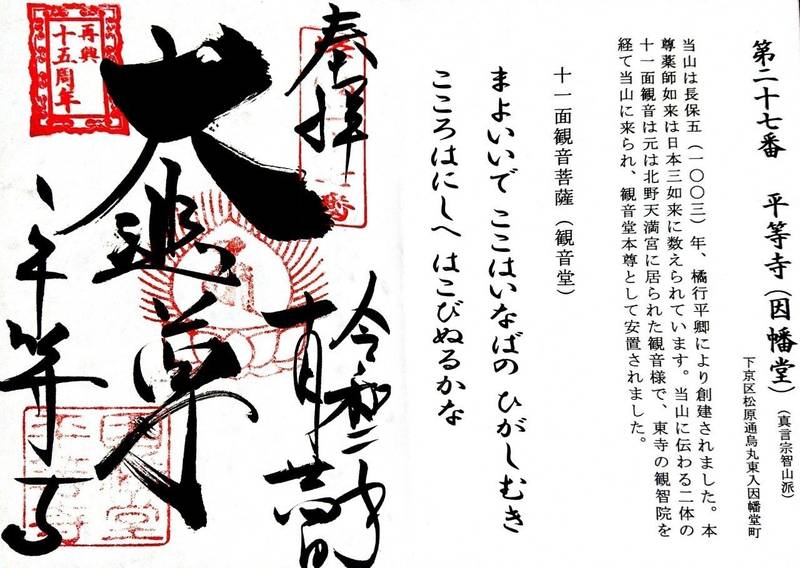 第二十七番　平等寺（因幡堂）（真言宗智山派）
下京区松原通烏丸東入因幡堂町
当山は長保五（一〇〇三）年、橘行平卿により創建されました。本
尊薬師如来は日本三如来に数えられています。当山に伝わる二体の
十一面観音は元は北野天満宮に居られた観音様で、東寺の観智院を
経て当山に来られ、観音堂本尊として安置されました。
十一面観音菩薩（観音堂）
まよいいで ここはいなばの ひがしむき
こころはにしへ はこびぬるかな
奉拝
令和二年
大
平等寺
再興
十五周年